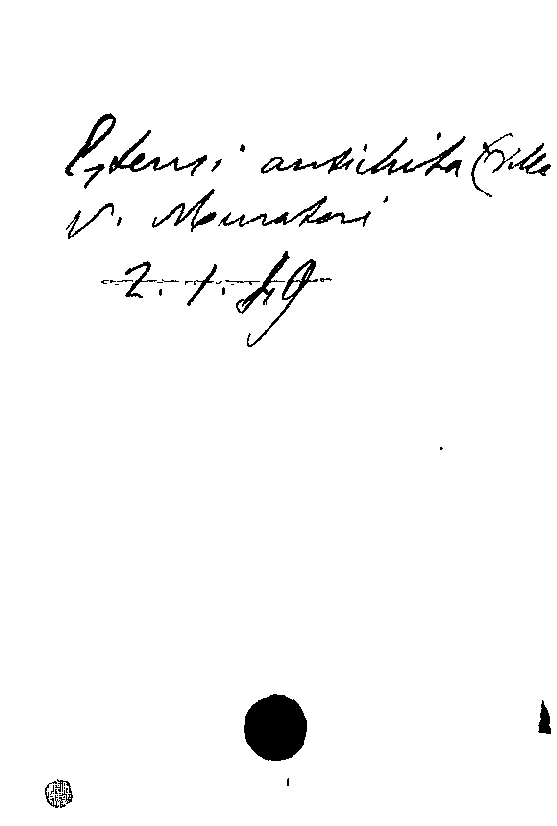 Estensi antichità (Delle
V. Muratori
2.1.49